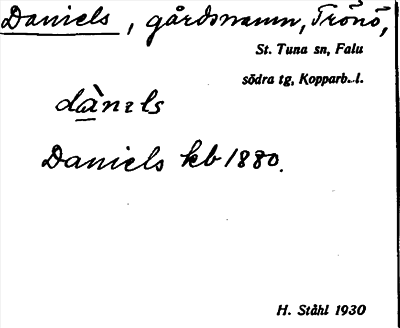 Daniels, gårdsnamn, Trönö,
St. Tuna sn, Falu
södra tg, Kopparb. l.
dànɛls
Daniels kb 1880.
H. Ståhl 1930